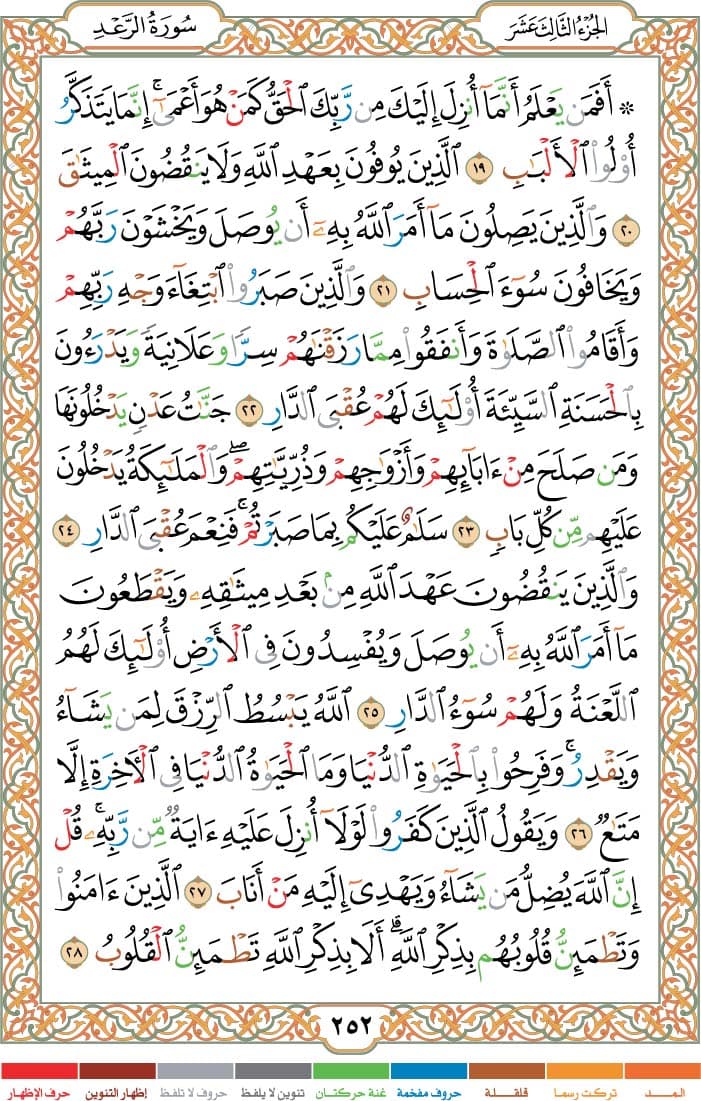 الجزء الثالث عشر
سورة الرعد
۞ أَفَمَن يَعْلَمُ أَنَّمَآ أُنزِلَ إِلَيْكَ مِن رَّبِّكَ ٱلْحَقُّ كَمَنْ هُوَ أَعْمَىٰٓ ۚ إِنَّمَا يَتَذَكَّرُ
أُو۟لُوا۟ ٱلْأَلْبَـٰبِ ١٩ ٱلَّذِينَ يُوفُونَ بِعَهْدِ ٱللَّهِ وَلَا يَنقُضُونَ ٱلْمِيثَـٰقَ
٢٠ وَٱلَّذِينَ يَصِلُونَ مَآ أَمَرَ ٱللَّهُ بِهِۦٓ أَن يُوصَلَ وَيَخْشَوْنَ رَبَّهُمْ
وَيَخَافُونَ سُوٓءَ ٱلْحِسَابِ ٢١ وَٱلَّذِينَ صَبَرُوا۟ ٱبْتِغَآءَ وَجْهِ رَبِّهِمْ
وَأَقَامُوا۟ ٱلصَّلَوٰةَ وَأَنفَقُوا۟ مِمَّا رَزَقْنَـٰهُمْ سِرًّا وَعَلَانِيَةً وَيَدْرَءُونَ
بِٱلْحَسَنَةِ ٱلسَّيِّئَةَ أُو۟لَـٰٓئِكَ لَهُمْ عُقْبَى ٱلدَّارِ ٢٢ جَنَّـٰتُ عَدْنٍ يَدْخُلُونَهَا
وَمَن صَلَحَ مِنْ ءَابَآئِهِمْ وَأَزْوَٰجِهِمْ وَذُرِّيَّـٰتِهِمْ ۖ وَٱلْمَلَـٰٓئِكَةُ يَدْخُلُونَ
عَلَيْهِم مِّن كُلِّ بَابٍ ٢٣ سَلَـٰمٌ عَلَيْكُم بِمَا صَبَرْتُمْ ۚ فَنِعْمَ عُقْبَى ٱلدَّارِ ٢٤
وَٱلَّذِينَ يَنقُضُونَ عَهْدَ ٱللَّهِ مِنۢ بَعْدِ مِيثَـٰقِهِۦ وَيَقْطَعُونَ
مَآ أَمَرَ ٱللَّهُ بِهِۦٓ أَن يُوصَلَ وَيُفْسِدُونَ فِى ٱلْأَرْضِ أُو۟لَـٰٓئِكَ لَهُمُ
ٱللَّعْنَةُ وَلَهُمْ سُوٓءُ ٱلدَّارِ ٢٥ ٱللَّهُ يَبْسُطُ ٱلرِّزْقَ لِمَن يَشَآءُ
وَيَقْدِرُ ۚ وَفَرِحُوا۟ بِٱلْحَيَوٰةِ ٱلدُّنْيَا وَمَا ٱلْحَيَوٰةُ ٱلدُّنْيَا فِى ٱلْـَٔاخِرَةِ إِلَّا
مَتَـٰعٌ ٢٦ وَيَقُولُ ٱلَّذِينَ كَفَرُوا۟ لَوْلَآ أُنزِلَ عَلَيْهِ ءَايَةٌ مِّن رَّبِّهِۦ ۗ قُلْ
إِنَّ ٱللَّهَ يُضِلُّ مَن يَشَآءُ وَيَهْدِىٓ إِلَيْهِ مَنْ أَنَابَ ٢٧ ٱلَّذِينَ ءَامَنُوا۟
وَتَطْمَئِنُّ قُلُوبُهُم بِذِكْرِ ٱللَّهِ ۗ أَلَا بِذِكْرِ ٱللَّهِ تَطْمَئِنُّ ٱلْقُلُوبُ ٢٨
٢٥٢
المـــد تركت رسما قلقـلـة حروف مفخمة غنة حركتان تنوين لا يلفظ حروف لا تلفظ إظهار التنوين حرف الإظهار